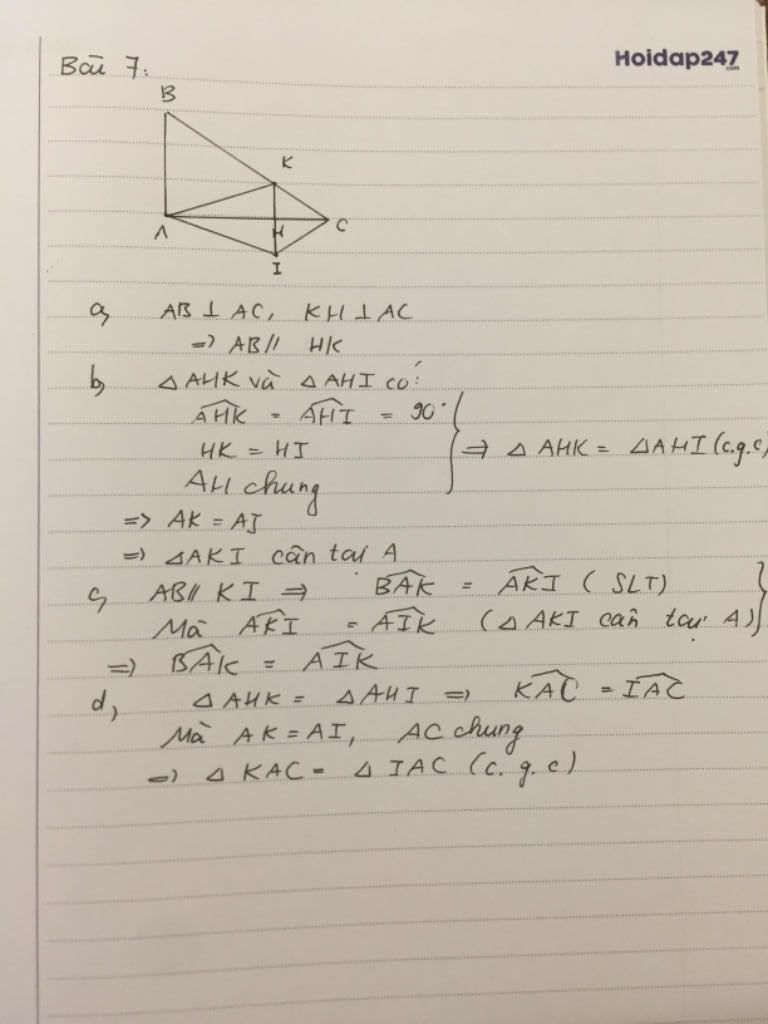 Hoidap247
.com
Bài 7:
B
K
A
H
C
I
a, AB ⊥ AC, KH ⊥ AC
=> AB // HK
b, △AHK và △AHI có:
\widehat{AHK} = \widehat{AHI} = 90°
HK = HI
AH chung
} => △AHK = △AHI (c.g.c)
=> AK = AI
=> △AKI cân tại A
c, AB // KI => \widehat{BAK} = \widehat{AKI} (SLT)
Mà \widehat{AKI} = \widehat{AIK} (△AKI cân tại A) }
=> \widehat{BAK} = \widehat{AIK}
d, △AHK = △AHI => \widehat{KAC} = \widehat{IAC}
Mà AK = AI, AC chung
=> △KAC = △IAC (c.g.c)